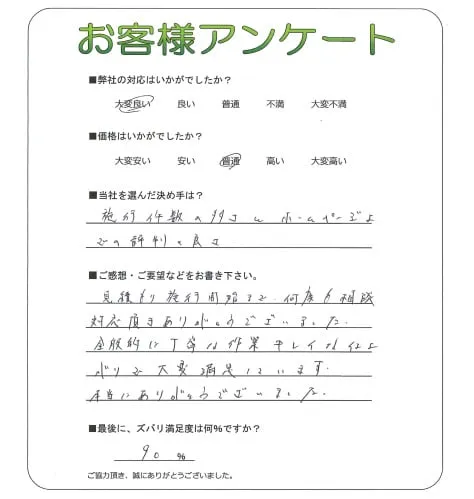 お客様アンケート
■弊社の対応はいかがでしたか？
大変良い 良い 普通 不満 大変不満
■価格はいかがでしたか？
大変安い 安い 普通 高い 大変高い
■当社を選んだ決め手は？
施行件数の多さと ホームページ上
での評判の良さ
■ご感想・ご要望などをお書き下さい。
見積もり 施行開始まで、何度も相談
対応頂きありがとうございました。
全般的に丁寧な作業 キレイな仕上
がりで 大変満足しています。
本当にありがとうございました。
■最後に、ズバリ満足度は何%ですか？
90 %
ご協力頂き、誠にありがとうございました。